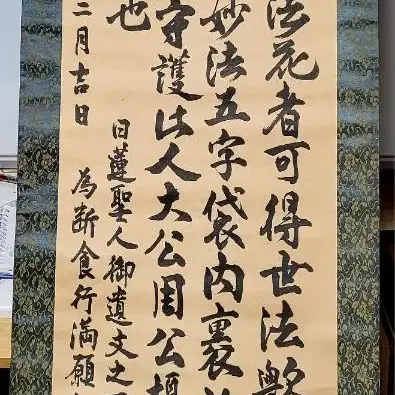 法花者可得世法歟
妙法五字袋内裹
守護此人大公周公
也
二月吉日
日蓮聖人御遺文之
為断食行満願